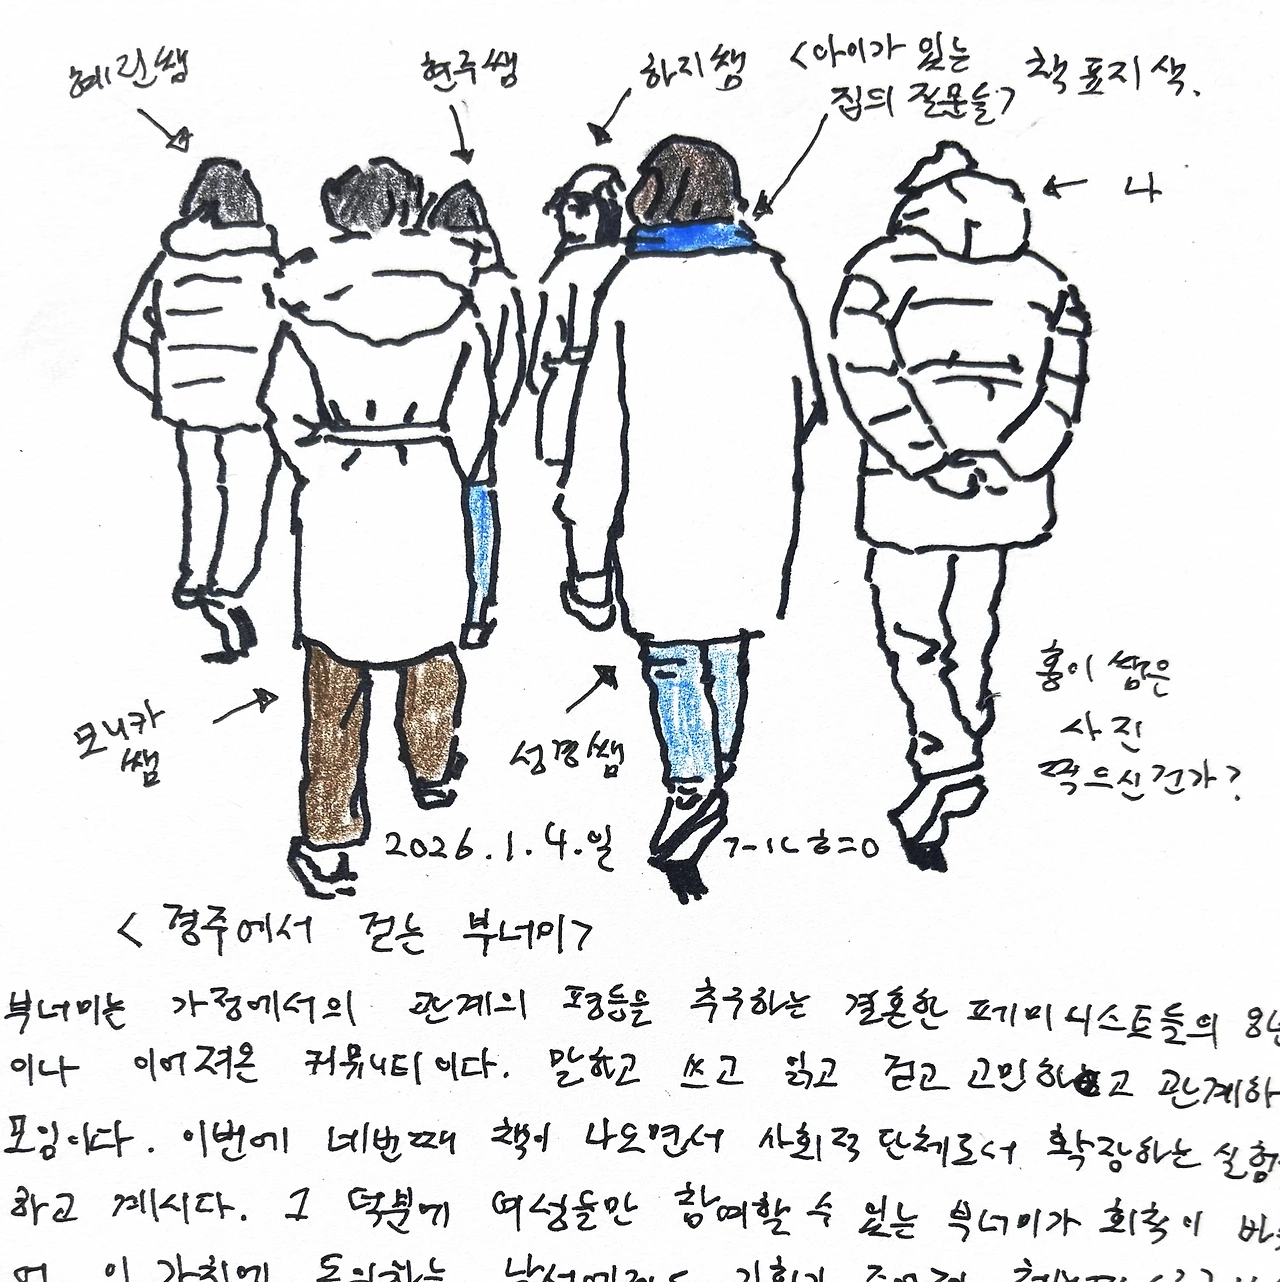 혜린쌤
현주쌤
하지쌤
<아이가 있는
집의 질문들>
책 표지 색.
← 나
모니카
쌤
성경쌤
홍이 쌤은
사진
찍으신건가?
2026.1.4.일
<경주에서 걷는 부너미>
부너미는 가정에서의 관계의 평등을 추구하는 결혼한 페미니스트들의 8년
이나 이어져온 커뮤니티이다. 말하고 쓰고 읽고 걷고 고민하고 관계하
모임이다. 이번에 네번째 책이 나오면서 사회적 단체로서 확장하는 실험
하고 계시다. 그 덕분에 여성들만 참여할 수 있는 부너미가 회칙이 바
이 가치에 동의하는